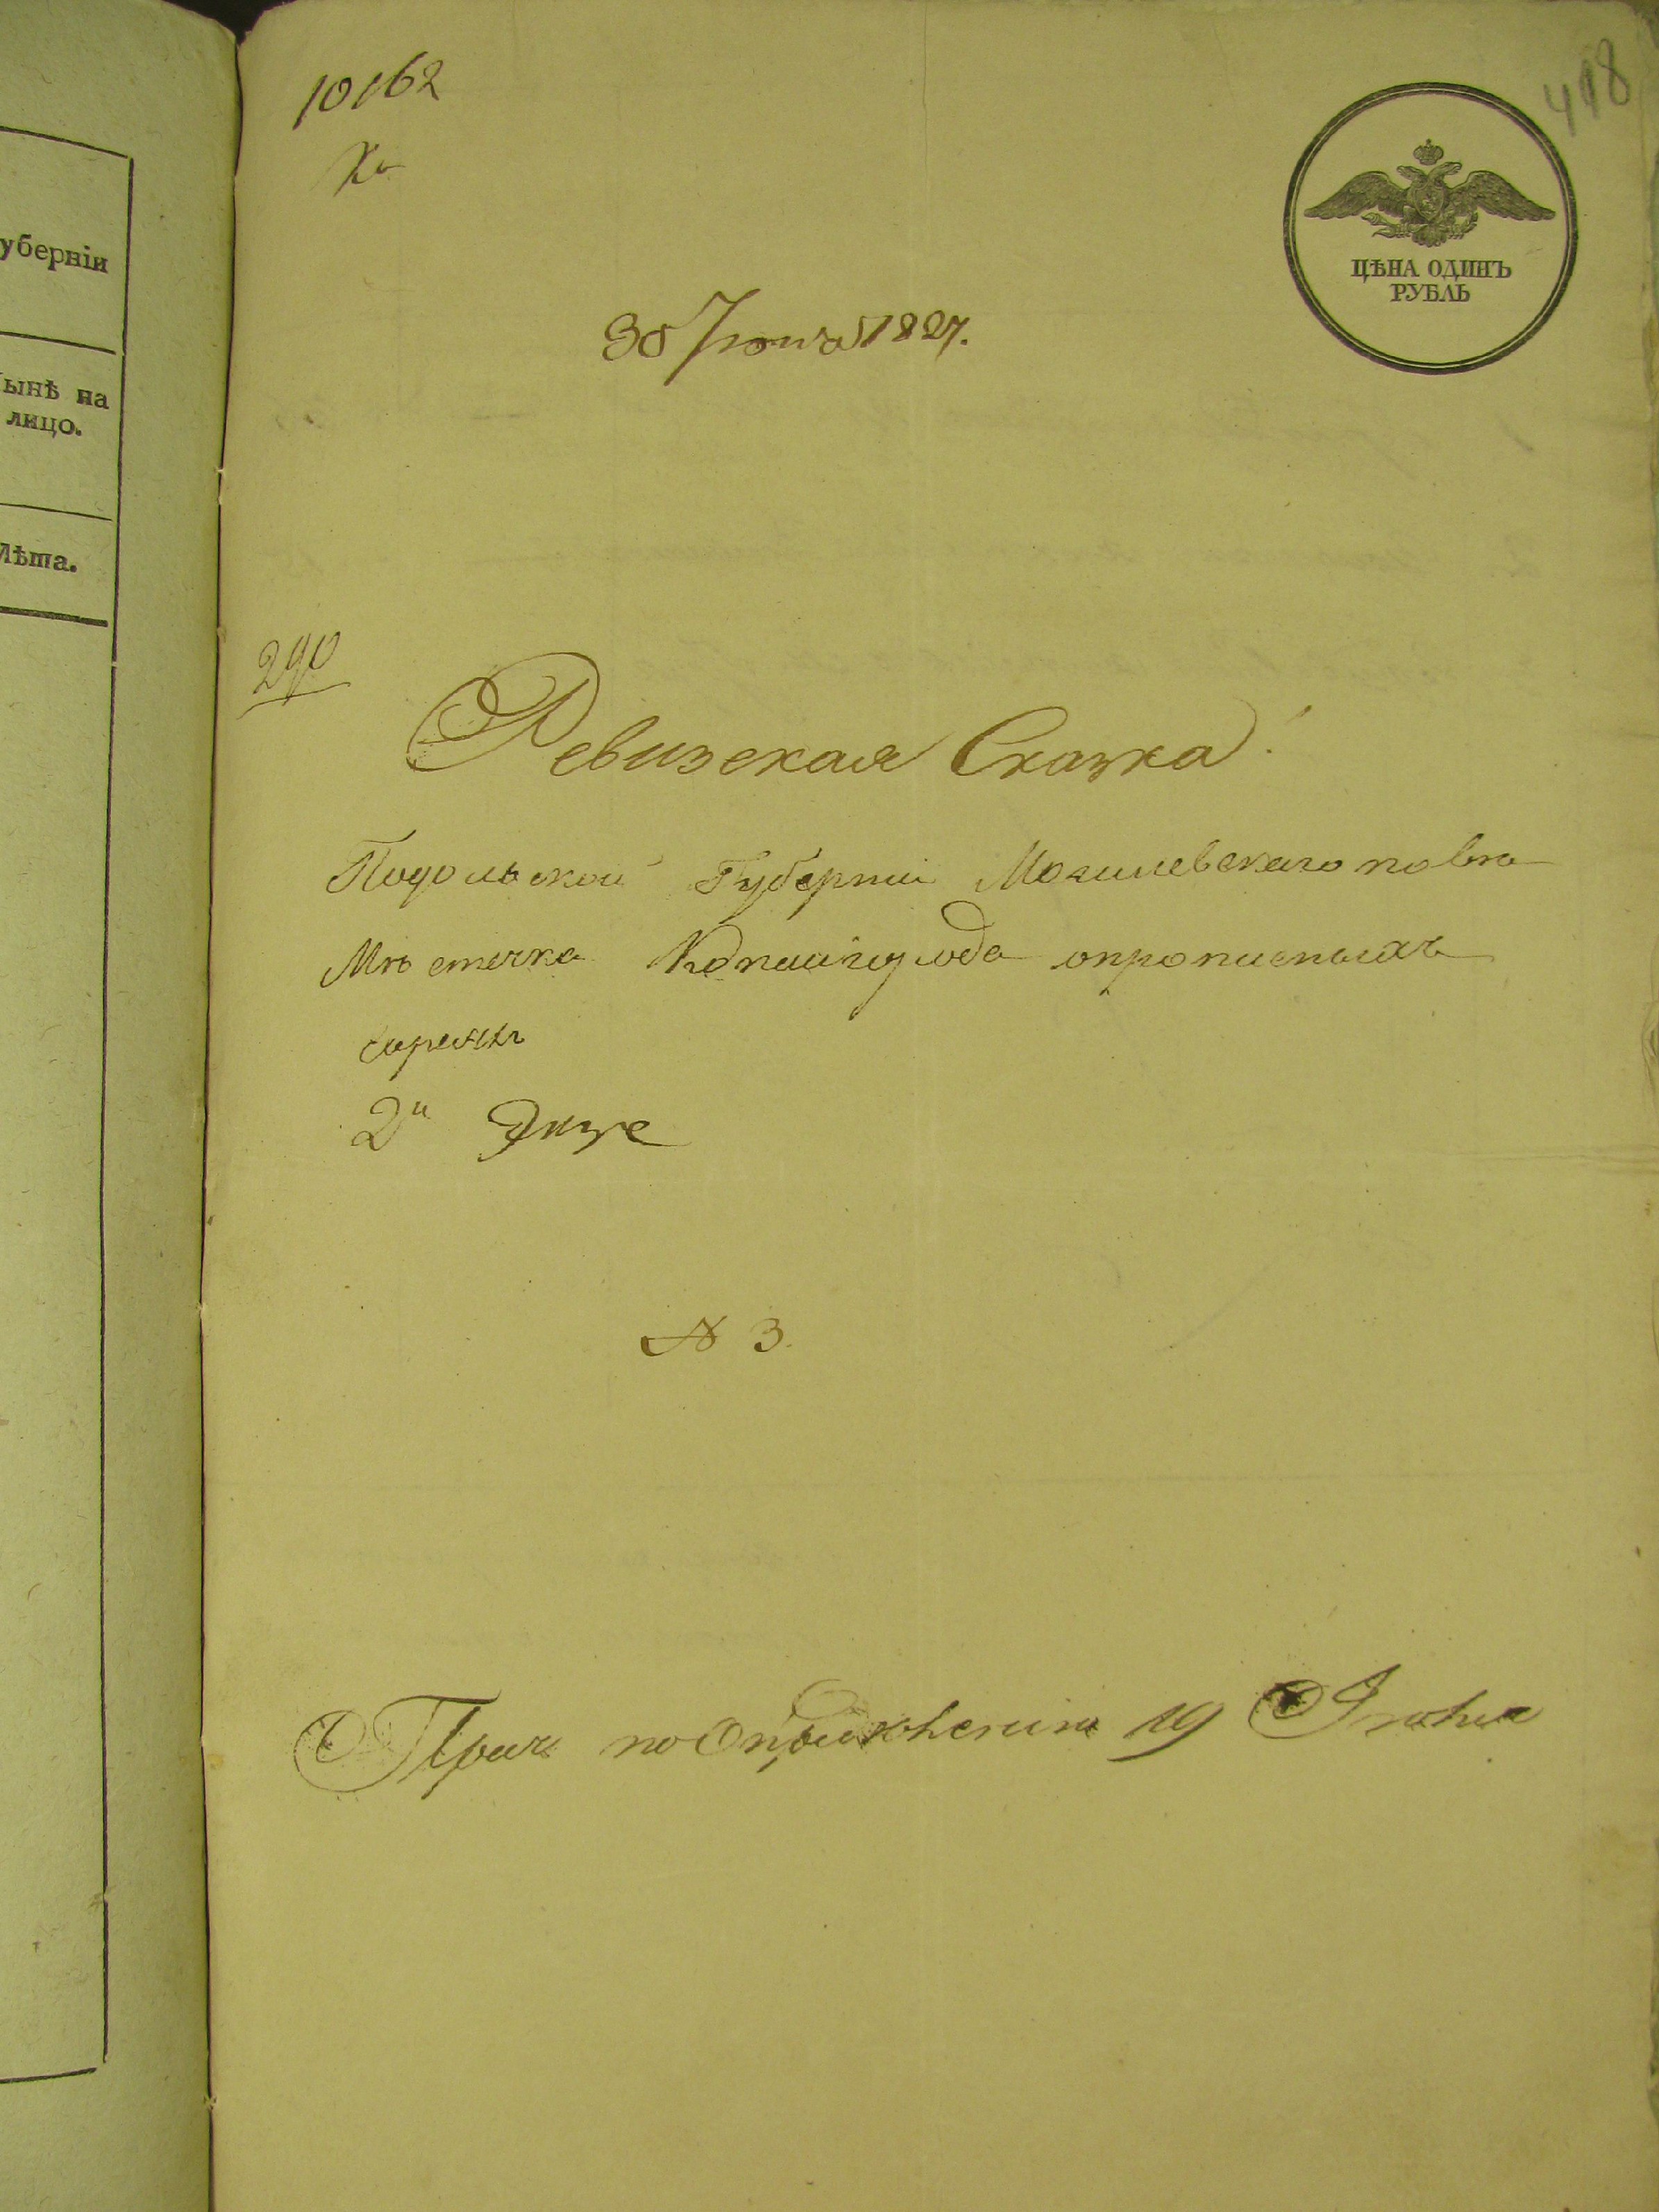 уберніи
ынѣ на
лицо.
Лѣта.
10162
418
ЦѢНА ОДИНЪ
РУБЛЬ
30 Іюня 1827.
290
Ревизская Сказка
Подольской Губерніи Могилевского повта
Мѣстечка Копайгрода опрописныхъ
евреяхъ
2й Экзе
№ 3.
по 19 Іюня